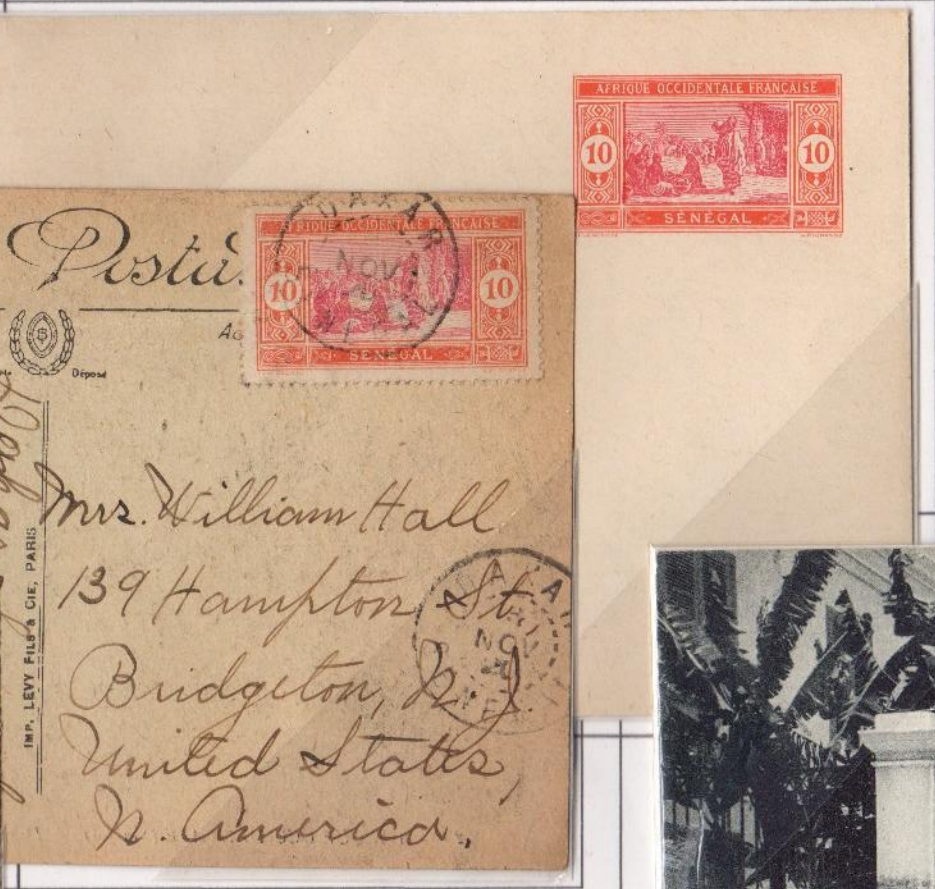 AFRIQUE OCCIDENTALE FRANÇAISE
10 10
SÉNÉGAL
Posta
AFRIQUE OCCIDENTALE FRANÇAISE
10 10
SÉNÉGAL
DAKAR
NOV
Déposé
IMP. LEVY FILS & CIE, PARIS
Mrs. William Hall
139 Hampton St.
Bridgeton, N. J.
United States,
N. America.
DAKAR
NOV